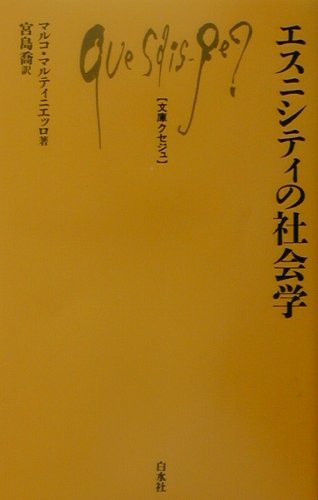 エスニシティの社会学
Que sais-je?
【文庫クセジュ】
マルコ・マルティニエッロ著
宮島喬訳
白水社